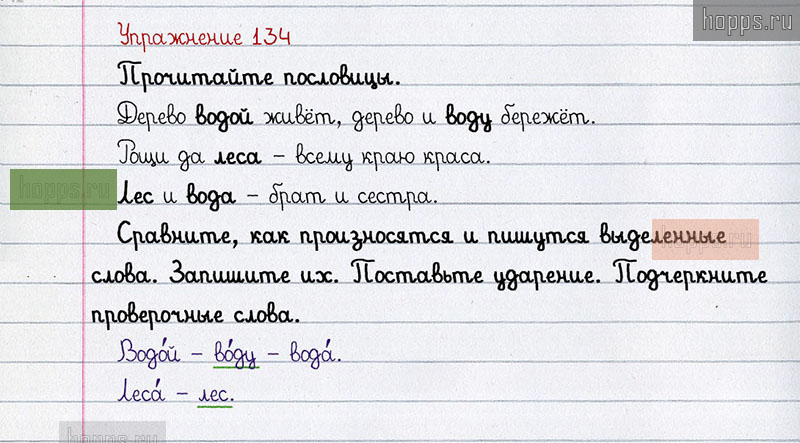 hopps.ru
Упражнение 134
Прочитайте пословицы.
Дерево водой живёт, дерево и воду бережёт.
Рощи да леса – всему краю краса.
hopps.ru
Лес и вода – брат и сестра.
Сравните, как произносятся и пишутся выделенные
hopps.ru
слова. Запишите их. Поставьте ударение. Подчеркните
проверочные слова.
Водо́й – во́ду – вода́.
Леса́ – лес.
hopps.ru